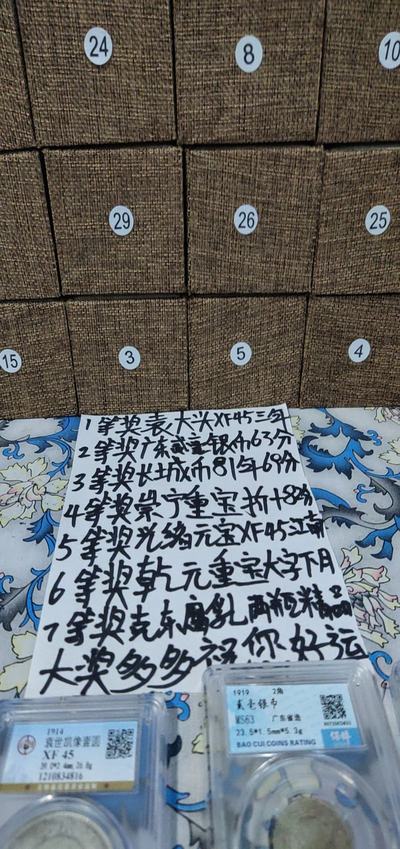 24
8
10
29
26
25
15
3
5
4
1等奖袁大头XF45三年
2等奖广东贰毫银币63分
3等奖长城币81年69分
4等奖崇宁重宝折十82分
5等奖光绪元宝XF45江南
6等奖乾元重宝大字下月
7等奖克东腐乳两瓶精品
大奖多多祝你好运
1914
袁世凯像壹圆
XF 45
1210834816
1919 2角
贰毫银币
MS63 广东省造
23.5*1.5mm*5.3g
BAO CUI COINS RATING